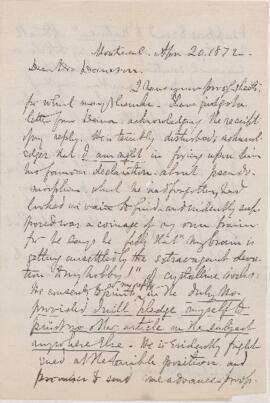 Montreal Apr 20. 1872 -
Dear Mr
I have your proof sheets
for which many thanks. I have just got a
letter from Dana acknowledging the receipt
of my reply. He is terribly disturbed, acknow
ledges that I am right in forcing upon him
his famous declaration about pseudo-
morphism which he had forgotten, had
looked in vain to find, and evidently sup
posed was a coinage of my own brain
for he says he that my brain is
getting unsettled by the extravagant devo
tion to my hobby!" of crystalline rocks.
He consents to print in the July No
provided I will pledge myself to
print no other article on the subject
anywhere else. He is evidently fright
ened at the terrible position and
promises to send me advance proofs